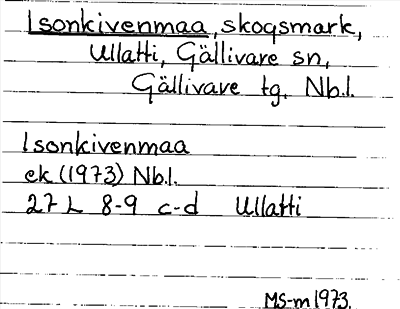 Isonkivenmaa, skogsmark,
Ullatti, Gällivare sn,
Gällivare tg. Nb.l.
Isonkivenmaa
ek. (1973) Nb.l.
27 L 8-9 c-d Ullatti
MS-m 1973.